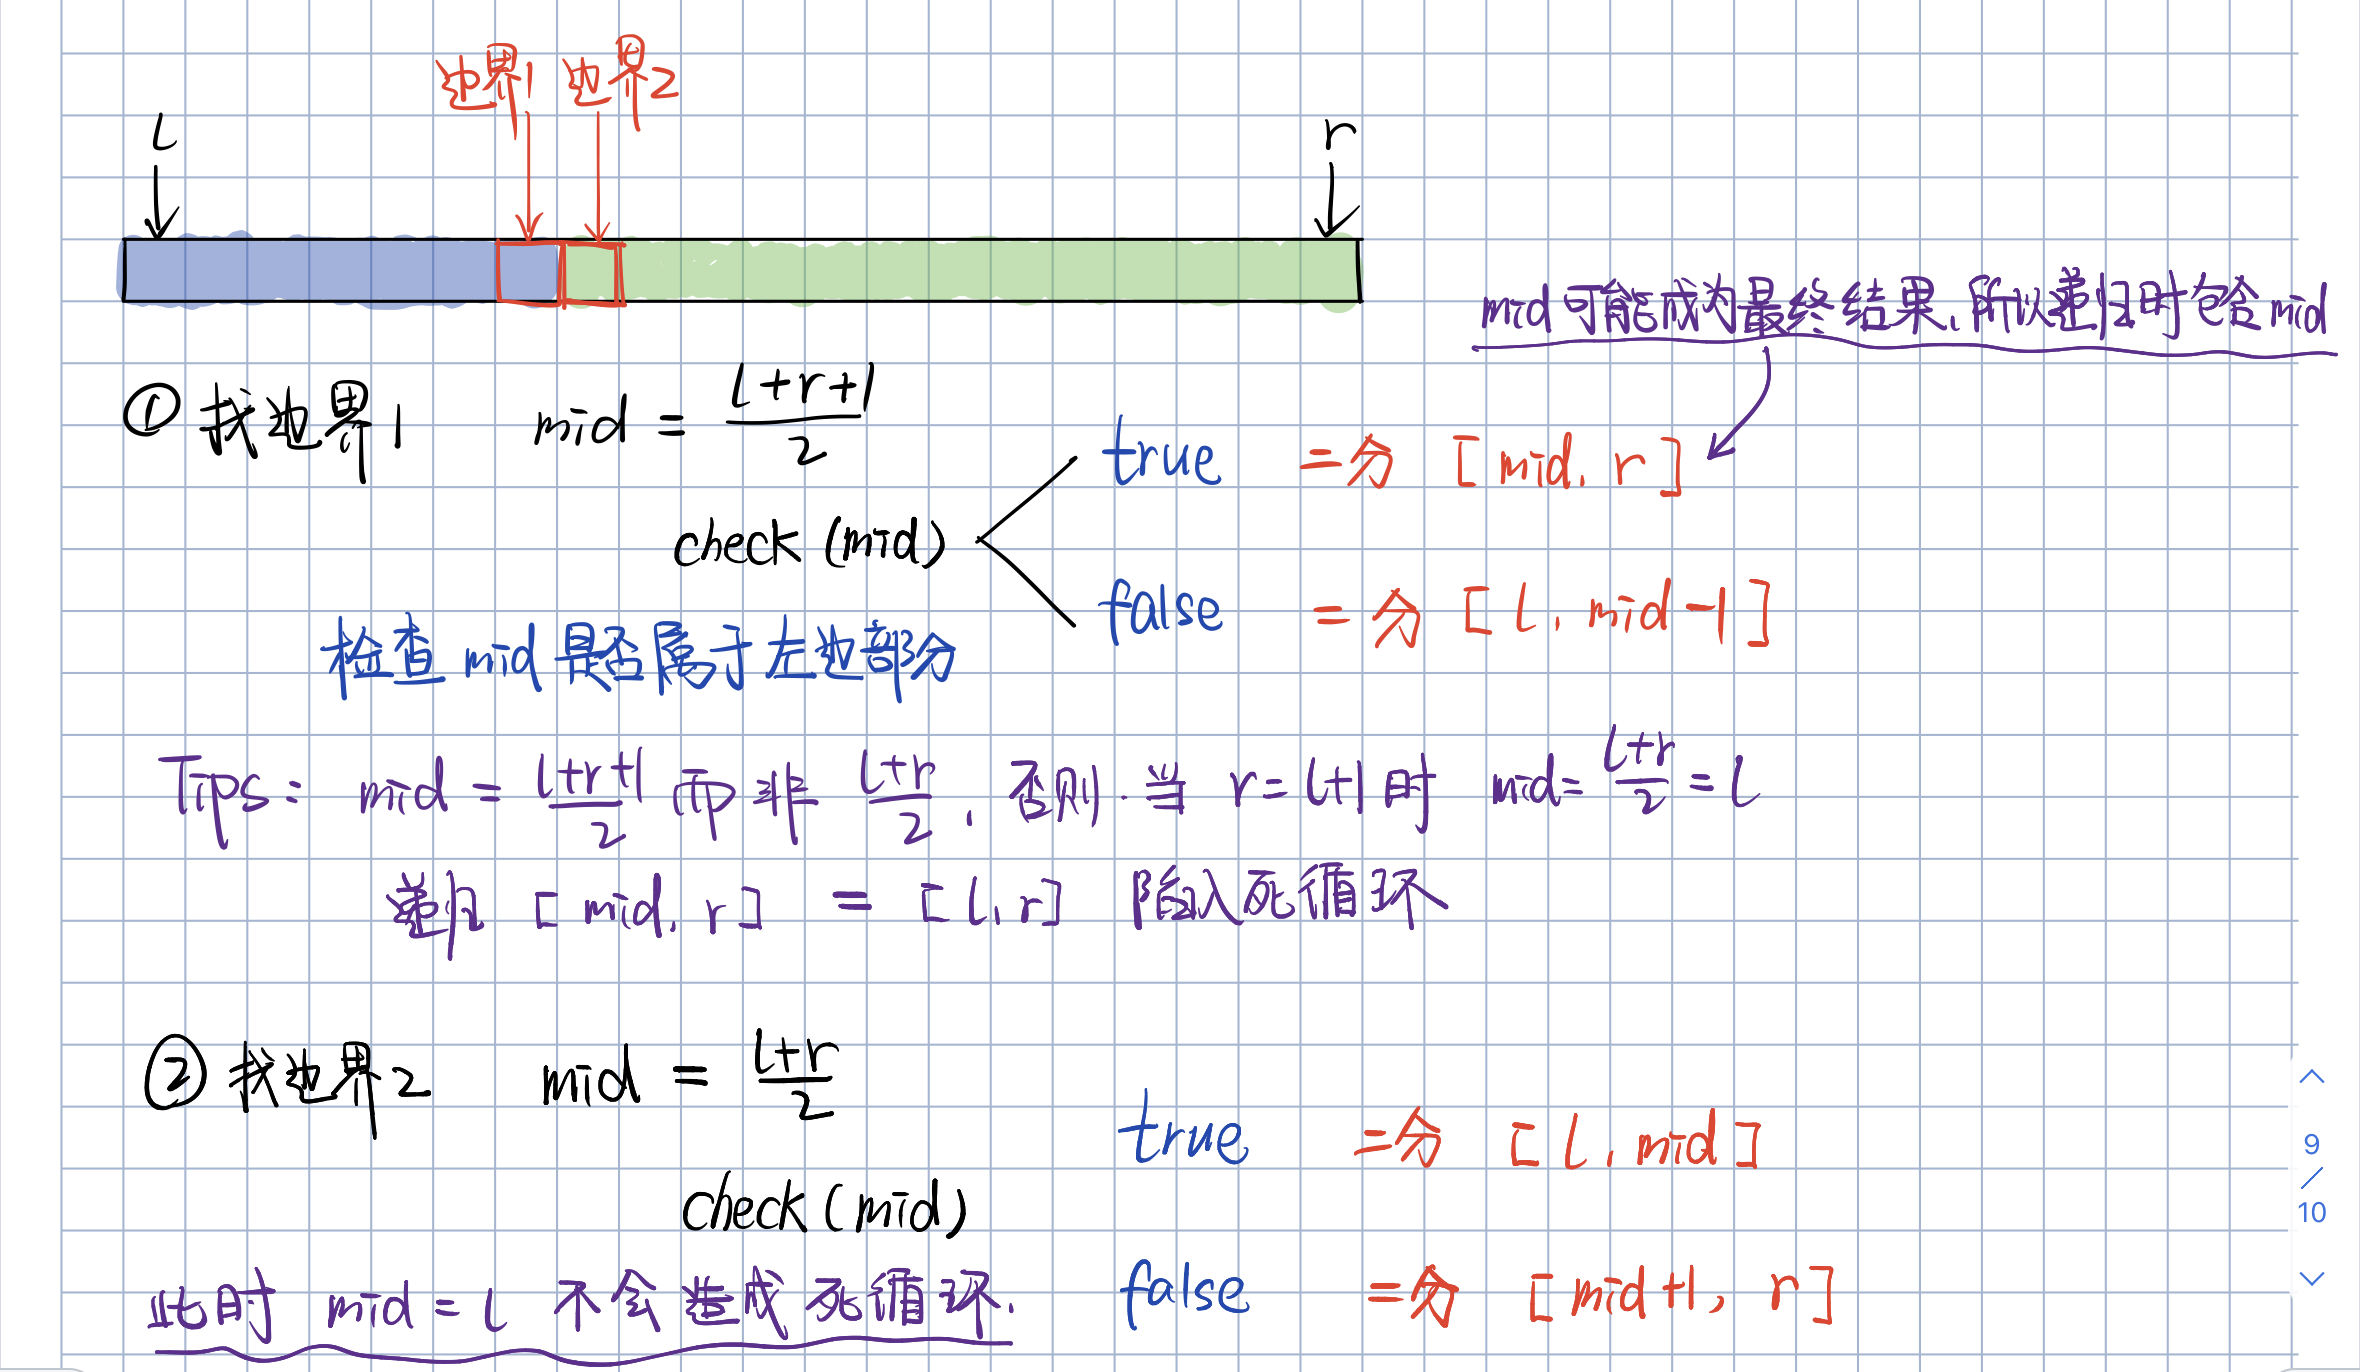 边界1 边界2
l r
mid可能成为最终结果,所以递归时包含mid
① 找边界1 mid = (l+r+1)/2
true 二分 [mid, r]
check (mid)
false 二分 [l, mid-1]
检查 mid 是否属于左边部分
Tips: mid = (l+r+1)/2 而非 (l+r)/2, 否则.当 r=l+1时 mid=(l+r)/2=l
递归 [mid, r] = [l, r] 陷入死循环
② 找边界2 mid = (l+r)/2
true 二分 [l, mid]
check (mid)
false 二分 [mid+1, r]
此时 mid=l 不会造成死循环.
9
/
10